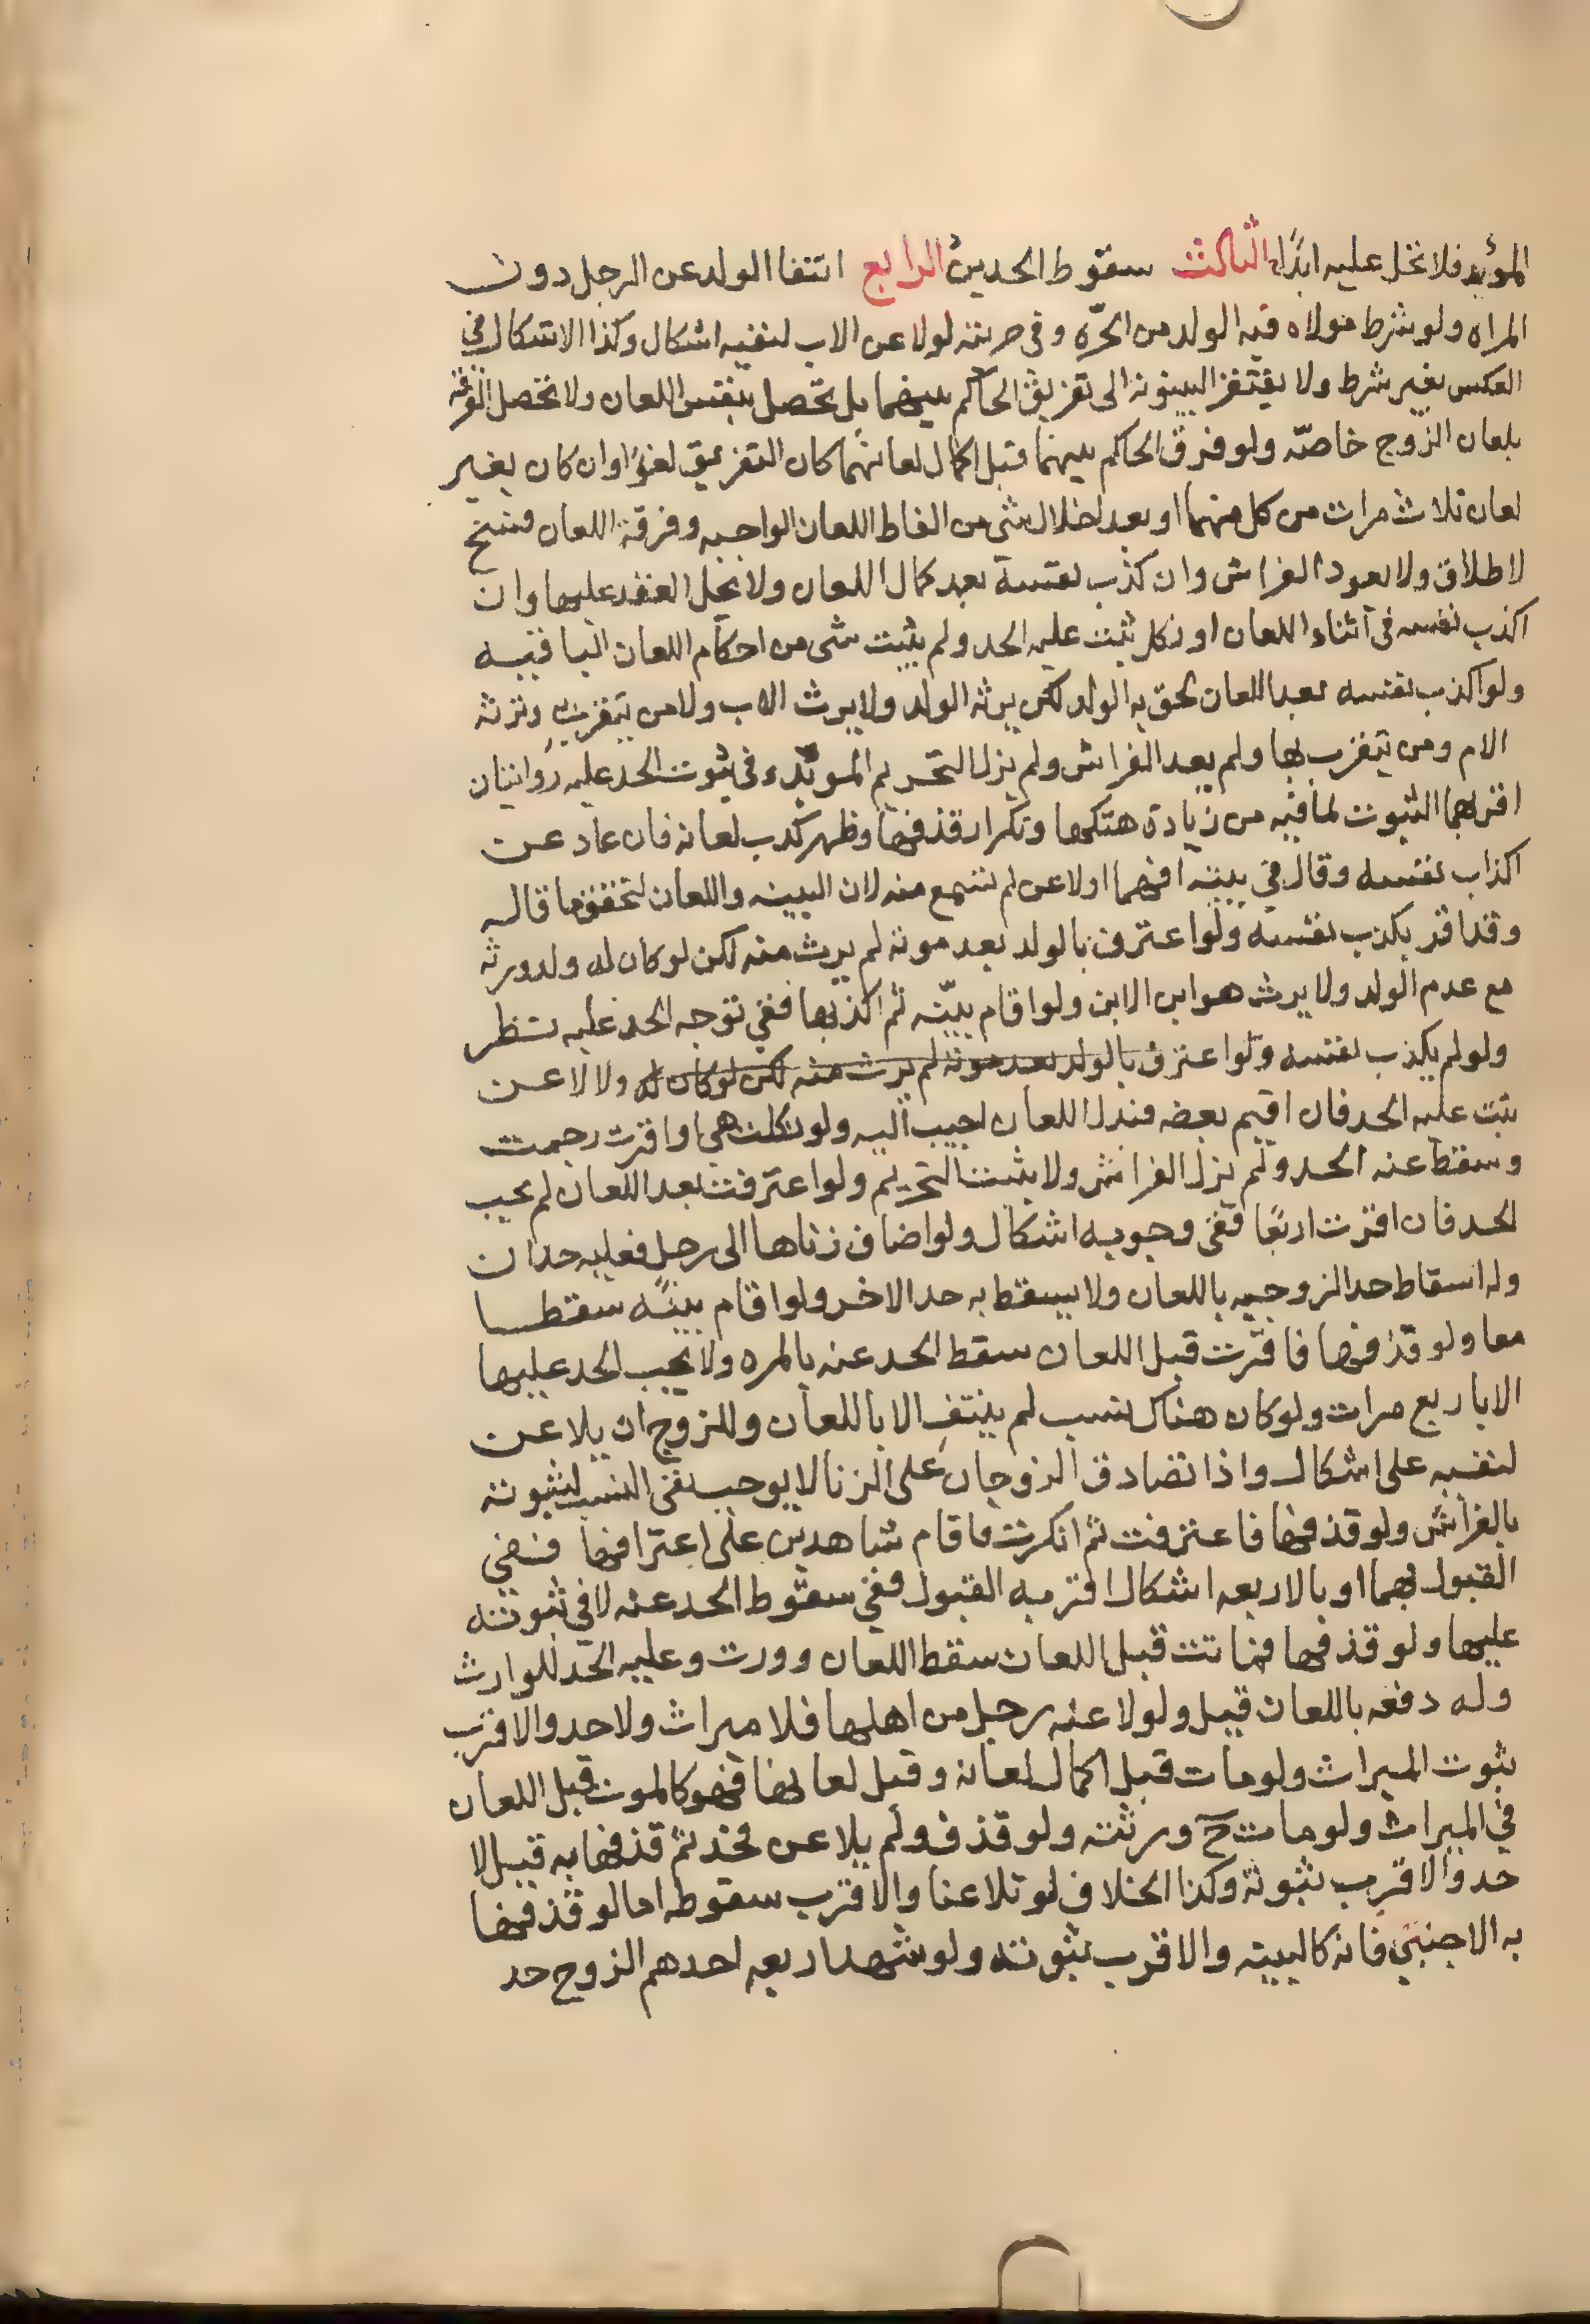 المؤبد فلا تحل عليه ابدًا الثالث سقوط الحدين الرابع انتفا الولد عن الرجل دون
المراه ولو شرط مولاه فيه الولد من الحرّه وفي حريته لو لاعن الاب لنفيه اشكال وكذا الاشكال في
العكس بغير شرط ولا يفتقر البينونه الى تفريق الحاكم بينهما بل تحصل بنفس اللعان ولا تحصل الفرقة
بلعان الزوج خاصّه ولو فرق الحاكم بينهما قبل اكمال لعانهما كان التفريق لغوًا وان كان بغير
لعان ثلاث مرات من كل منهما او بعد اخلال شي من الفاظ اللعان الواجبه وفرقة اللعان فسخ
لا طلاق ولا يعود الفراش وان كذب نفسه بعد كمال اللعان ولا يحل العقد عليها وان
اكذب نفسه في اثناء اللعان او نكل ثبت عليه الحد ولم يثبت شي من احكام اللعان الباقيه
ولو اكذب نفسه بعد اللعان لحق به الولد لكن يرثه الولد ولا يرث الاب ولا من يتقرب به وترثه
الام ومن يتقرب بها ولم يعد الفراش ولم يزل التحريم المؤبد وفي ثبوت الحد عليه روايتان
اقربهما الثبوت لما فيه من زيادة هتكها وتكرار قذفها وظهر كذب لعانه فان عاد عن
اكذاب نفسه وقال في بينه اقيمها او لاعن لم تسمع منه لان البينه واللعان لتحقق ما قاله
وقد اقر بكذب نفسه ولو اعترف بالولد بعد موته لم يرث منه لكن لو كان له ولد ورثه
مع عدم الولد ولا يرث هو ابن الابن ولو اقام بينّه ثم اكذبها ففي توجه الحد عليه نظر
ولو لم يكذب نفسه ولو اعترف بالولد بعد موته لم يرث منه لكن لو كان له ولا لاعن
ثبت عليه الحد فان اقيم بعضه فبذل اللعان اجيب اليه ولو نكلت هي او اقرت رجمت
وسقط عنه الحد ولم يزل الفراش ولا يثبت التحريم ولو اعترفت بعد اللعان لم يجب
الحد فان اقرت اربعًا ففي وجوبه اشكال ولو اضاف زناها الى رجل فعليه حدان
وله اسقاط حد الزوجيه باللعان ولا يسقط به حد الاخر ولو اقام بينًه سقطا
معا ولو قذفها فاقرّت قبل اللعان سقط الحد عنه بالمره ولا يجب الحد عليها
الا باربع مرات ولو كان هناك نسب لم ينتف الا باللعان وللزوج ان يلاعن
لنفيه على اشكال واذا تصادق الزوجان على الزنا لا يوجب نفي النسب لثبوته
بالفراش ولو قذفها فاعترفت ثم انكرت فاقام شاهدين على اعترافها ففي
القبول بهما او بالاربعه اشكال اقربه القبول ففي سقوط الحد عنه لا في ثبوته
عليها ولو قذفها فماتت قبل اللعان سقط اللعان وورث وعليه الحد للوارث
وله دفعه باللعان قيل ولو لاعنه رجل من اهلها فلا ميراث ولا حد والاقرب
ثبوت الميراث ولو مات قبل اكمال لعانه وقبل لعانها فهو كالموت قبل اللعان
في الميراث ولو ماتت ح ورثته ولو قذف ولم يلاعن فحد ثم قذفها به قيل لا
حد والاقرب ثبوته وكذا الخلاف لو تلاعنا والاقرب سقوطه اما لو قذفها
به الاجنبي فانه كالبينه والاقرب ثبوته ولو شهد اربعه احدهم الزوج حد